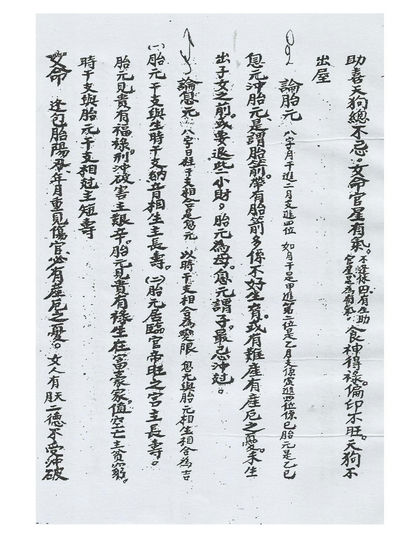 助喜天狗總不忌。女命官星有氣。不祿休囚有生助官星是為有氣。食神得祿。偏印不旺。天狗不
出屋
論胎元 八字月干進一月支進四位 如月干是甲進一位是乙月支係寅進四位係巳胎元是乙巳
息元沖胎元是謂胎前。常有胎前多係不好生育。或有難產有產厄之憂。未生
出子女之前。或要退些小財。胎元為母。息元謂子。最忌沖尅。
論息元 八字日柱干支相合是息元 以時干支相合為變限 息元與胎元相生相合為吉
(一)胎元干支與生時干支納音相生主長壽。(二)胎元居臨官帝旺之宮主長壽。
胎元見貴有福祿。刑沖破害主艱辛。胎元見貴有祿生在富豪家。值空亡主貧窮。
時干支與胎元干支相尅主短壽
女命 逆包胎陽刃年月重見傷官必有產厄之憂。女人有天月二德不受沖破